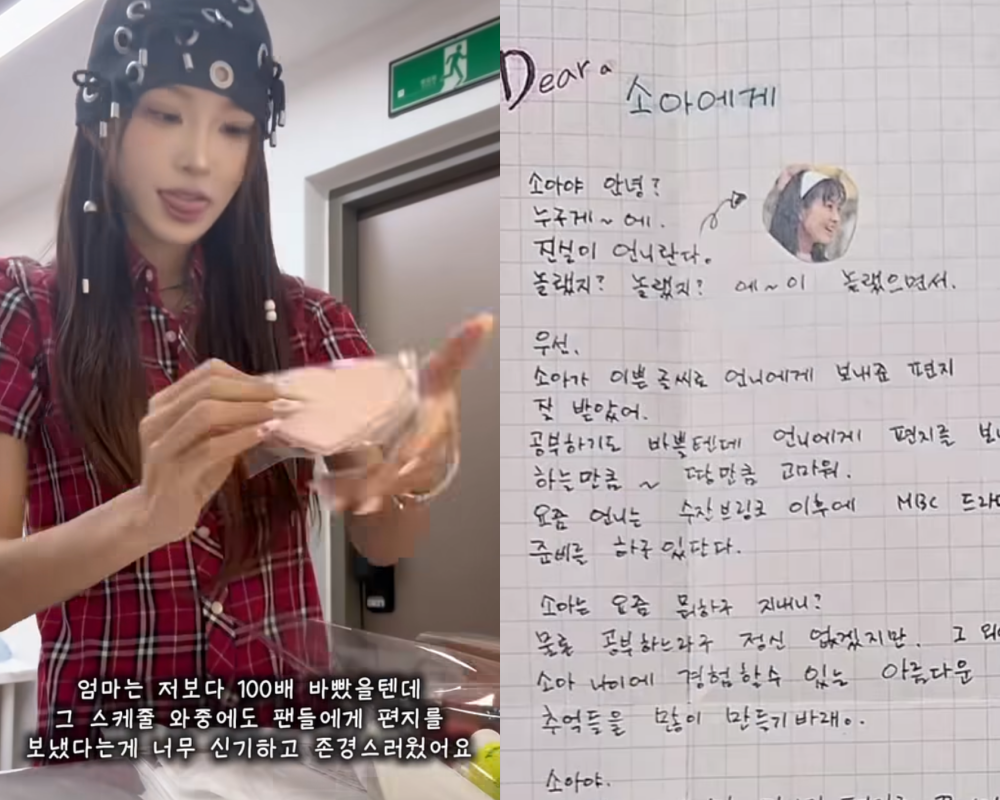 엄마는 저보다 100배 바빴을텐데
그 스케줄 와중에도 팬들에게 편지를
보냈다는게 너무 신기하고 존경스러웠어요
Dear a
소아에게
소아야 안녕?
누구게~에.
진실이 언니란다.
놀랬지? 놀랬지? 에~이 놀랬으면서.
우선,
소아가 이쁜 글씨로 언니에게 보내준 편지
잘 받았어.
공부하기도 바쁠텐데 언니에게 편지를
하늘만큼~ 땅만큼 고마워.
요즘 언니는 수잔브링크 이후에 MBC
준비를 하구 있단다.
소아는 요즘 뭐하구 지내니?
물론 공부하느라구 정신 없겠지만. 그
소아 나이에 경험할수 있는 아름다운
추억들을 많이 만들기 바래.
소아야.